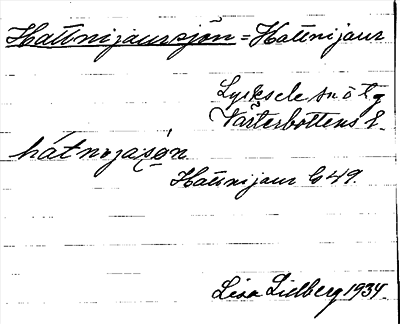 Hattnijaursjön = Hattnijaur
Lycksele sn o tg
Västerbottens l.
hátnojasọ́n
Hattnijaur G 49.
Lisa Lidberg 1934.